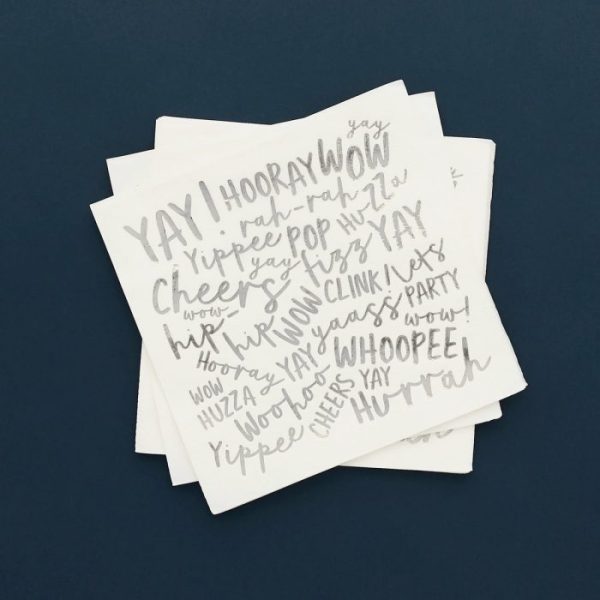 yay
YAY! HOORAY WOW
rah-rah HUZZa
Yippee POP YAY
yay fizz
Cheers CLINK! lets
wow- WOW PARTY
hip-hip yaass wow!
Hooray YAY WHOOPEE!
WOW
HUZZA Woohoo YAY
CHEERS Hurrah
Yippee